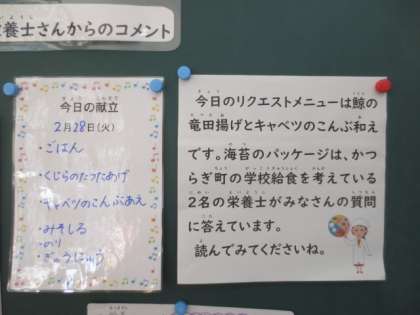 養士さんからのコメント
今日の献立
2月28日(火)
・ごはん
・くじらのたつたあげ
・キャベツのこんぶあえ
・みそしる
・のり
・ぎゅうにゅう
今日のリクエストメニューは鯨の
竜田揚げとキャベツのこんぶ和え
です。海苔のパッケージは、かつ
らぎ町の学校給食を考えている
2名の栄養士がみなさんの質問
に答えています。
読んでみてくださいね。